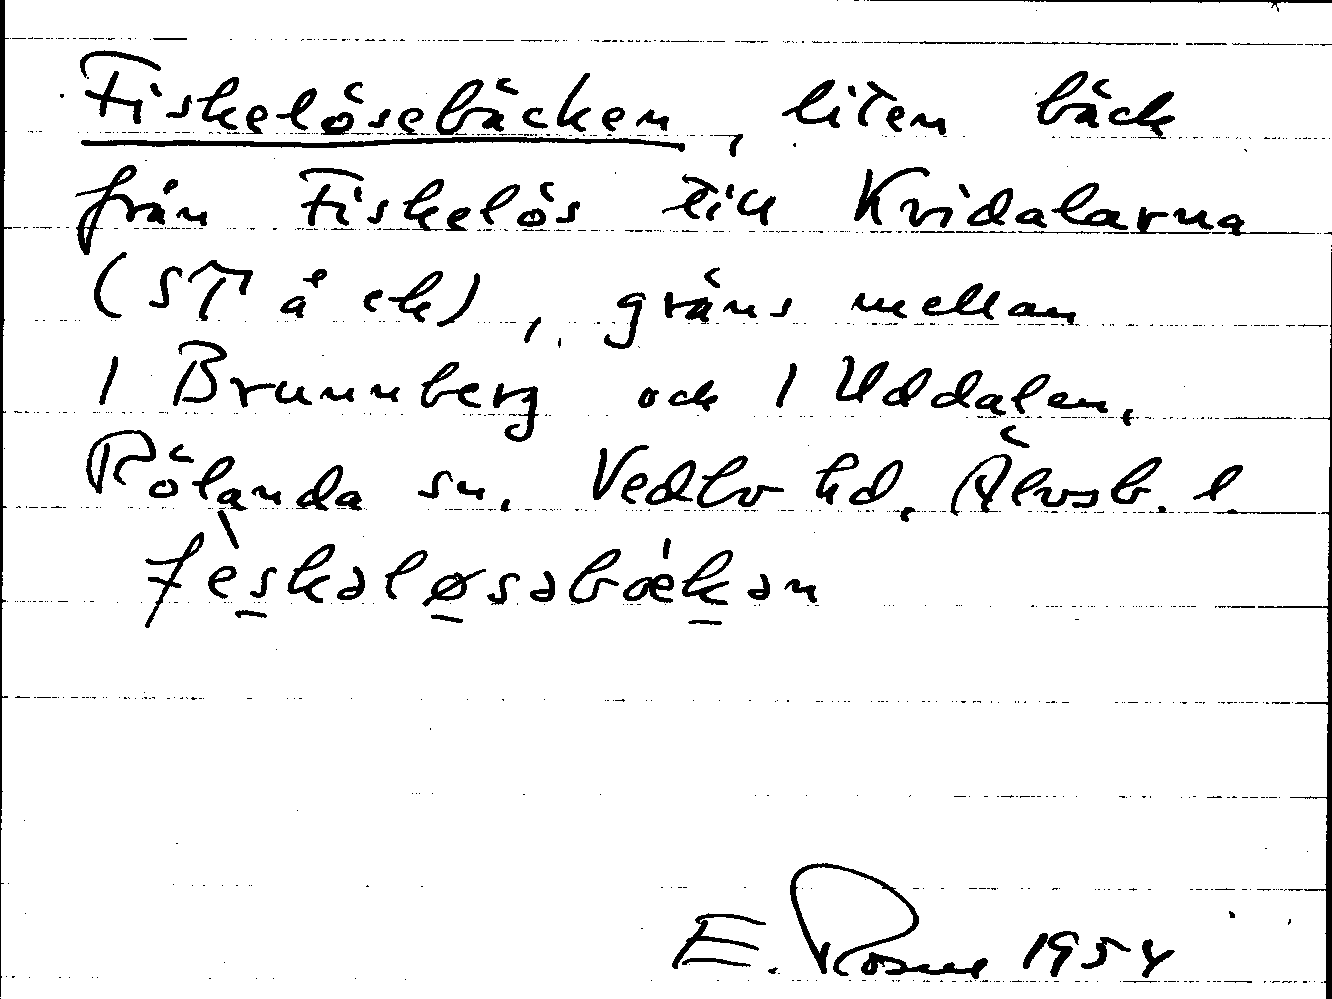 Fiskelösebäcken, liten bäck
från Fiskelös till Kvidalarna
(ST å ek), gräns mellan
1 Brunnberg och 1 Uddalen,
Rölanda sn. Vedbo hd, Älvsb. l.
fèskəløsəbækən
E. 1954